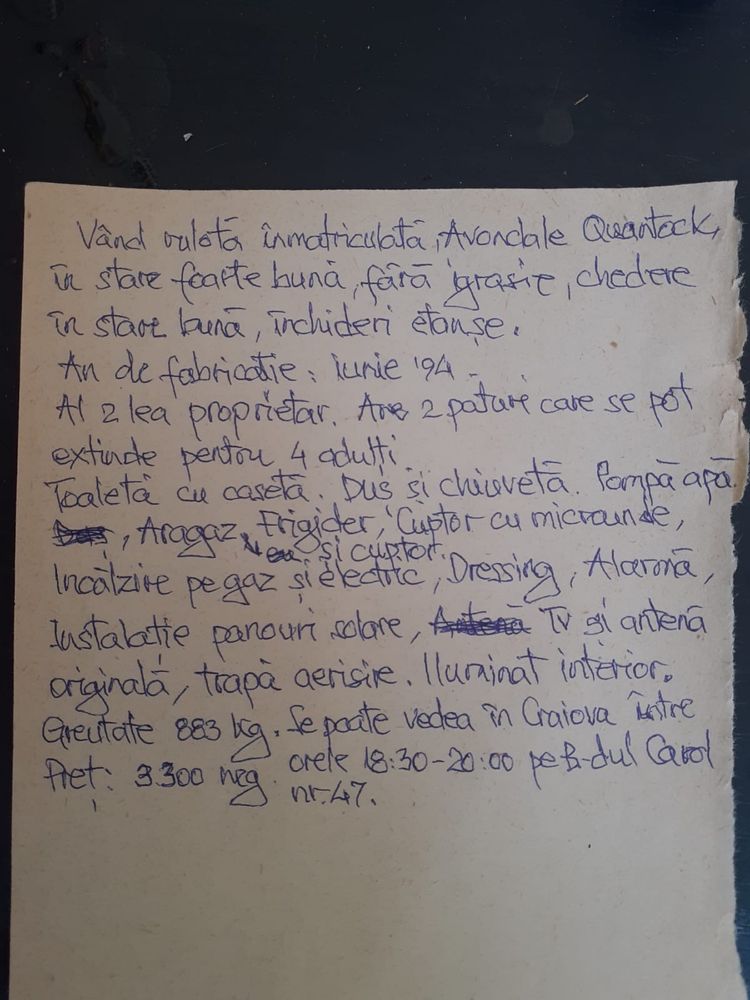 Vând rulotă înmatriculată, Avondale Quantock,
în stare foarte bună, fără igrasie, chedere
în stare bună, închideri etanșe.
An de fabricație: iunie '94.
Al 2 lea proprietar. Are 2 paturi care se pot
extinde pentru 4 adulți.
Toaletă cu casetă. Duș și chiuvetă. Pompă apă
, Aragaz, Frigider, Cuptor cu microunde,
și cuptor.
Incălzire pe gaz și electric, Dressing, Alarmă,
Instalație panouri solare, Tv și antenă
originală, trapă aerisire. Iluminat interior.
Greutate 883 kg. Se poate vedea în Craiova între
orele 18:30-20:00 pe B-dul Carol
Preț: 3.300 neg
nr. 47.